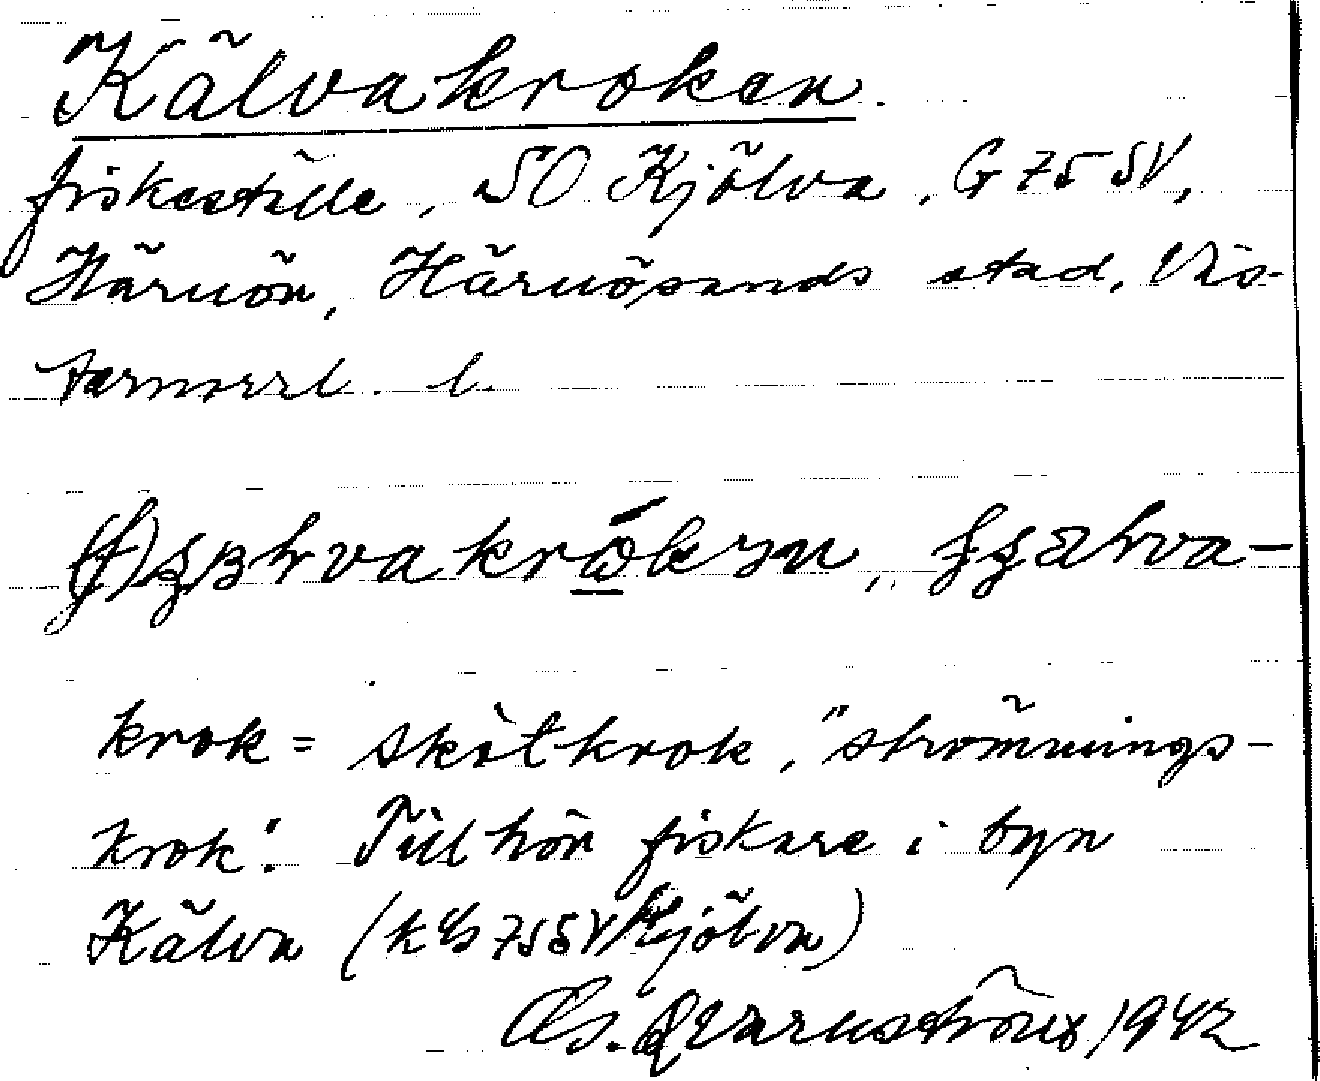 Kälvakroken.
fiskeställe, SO Kjölva, G 75 SV,
Härnön, Härnösands stad, Väs-
ternorrl. l.
krok = skötkrok, "strömmings-
krok". Tillhör fiskare i byn
Kälva (k G 75 SV Kjölva)
Qvarnström 1942